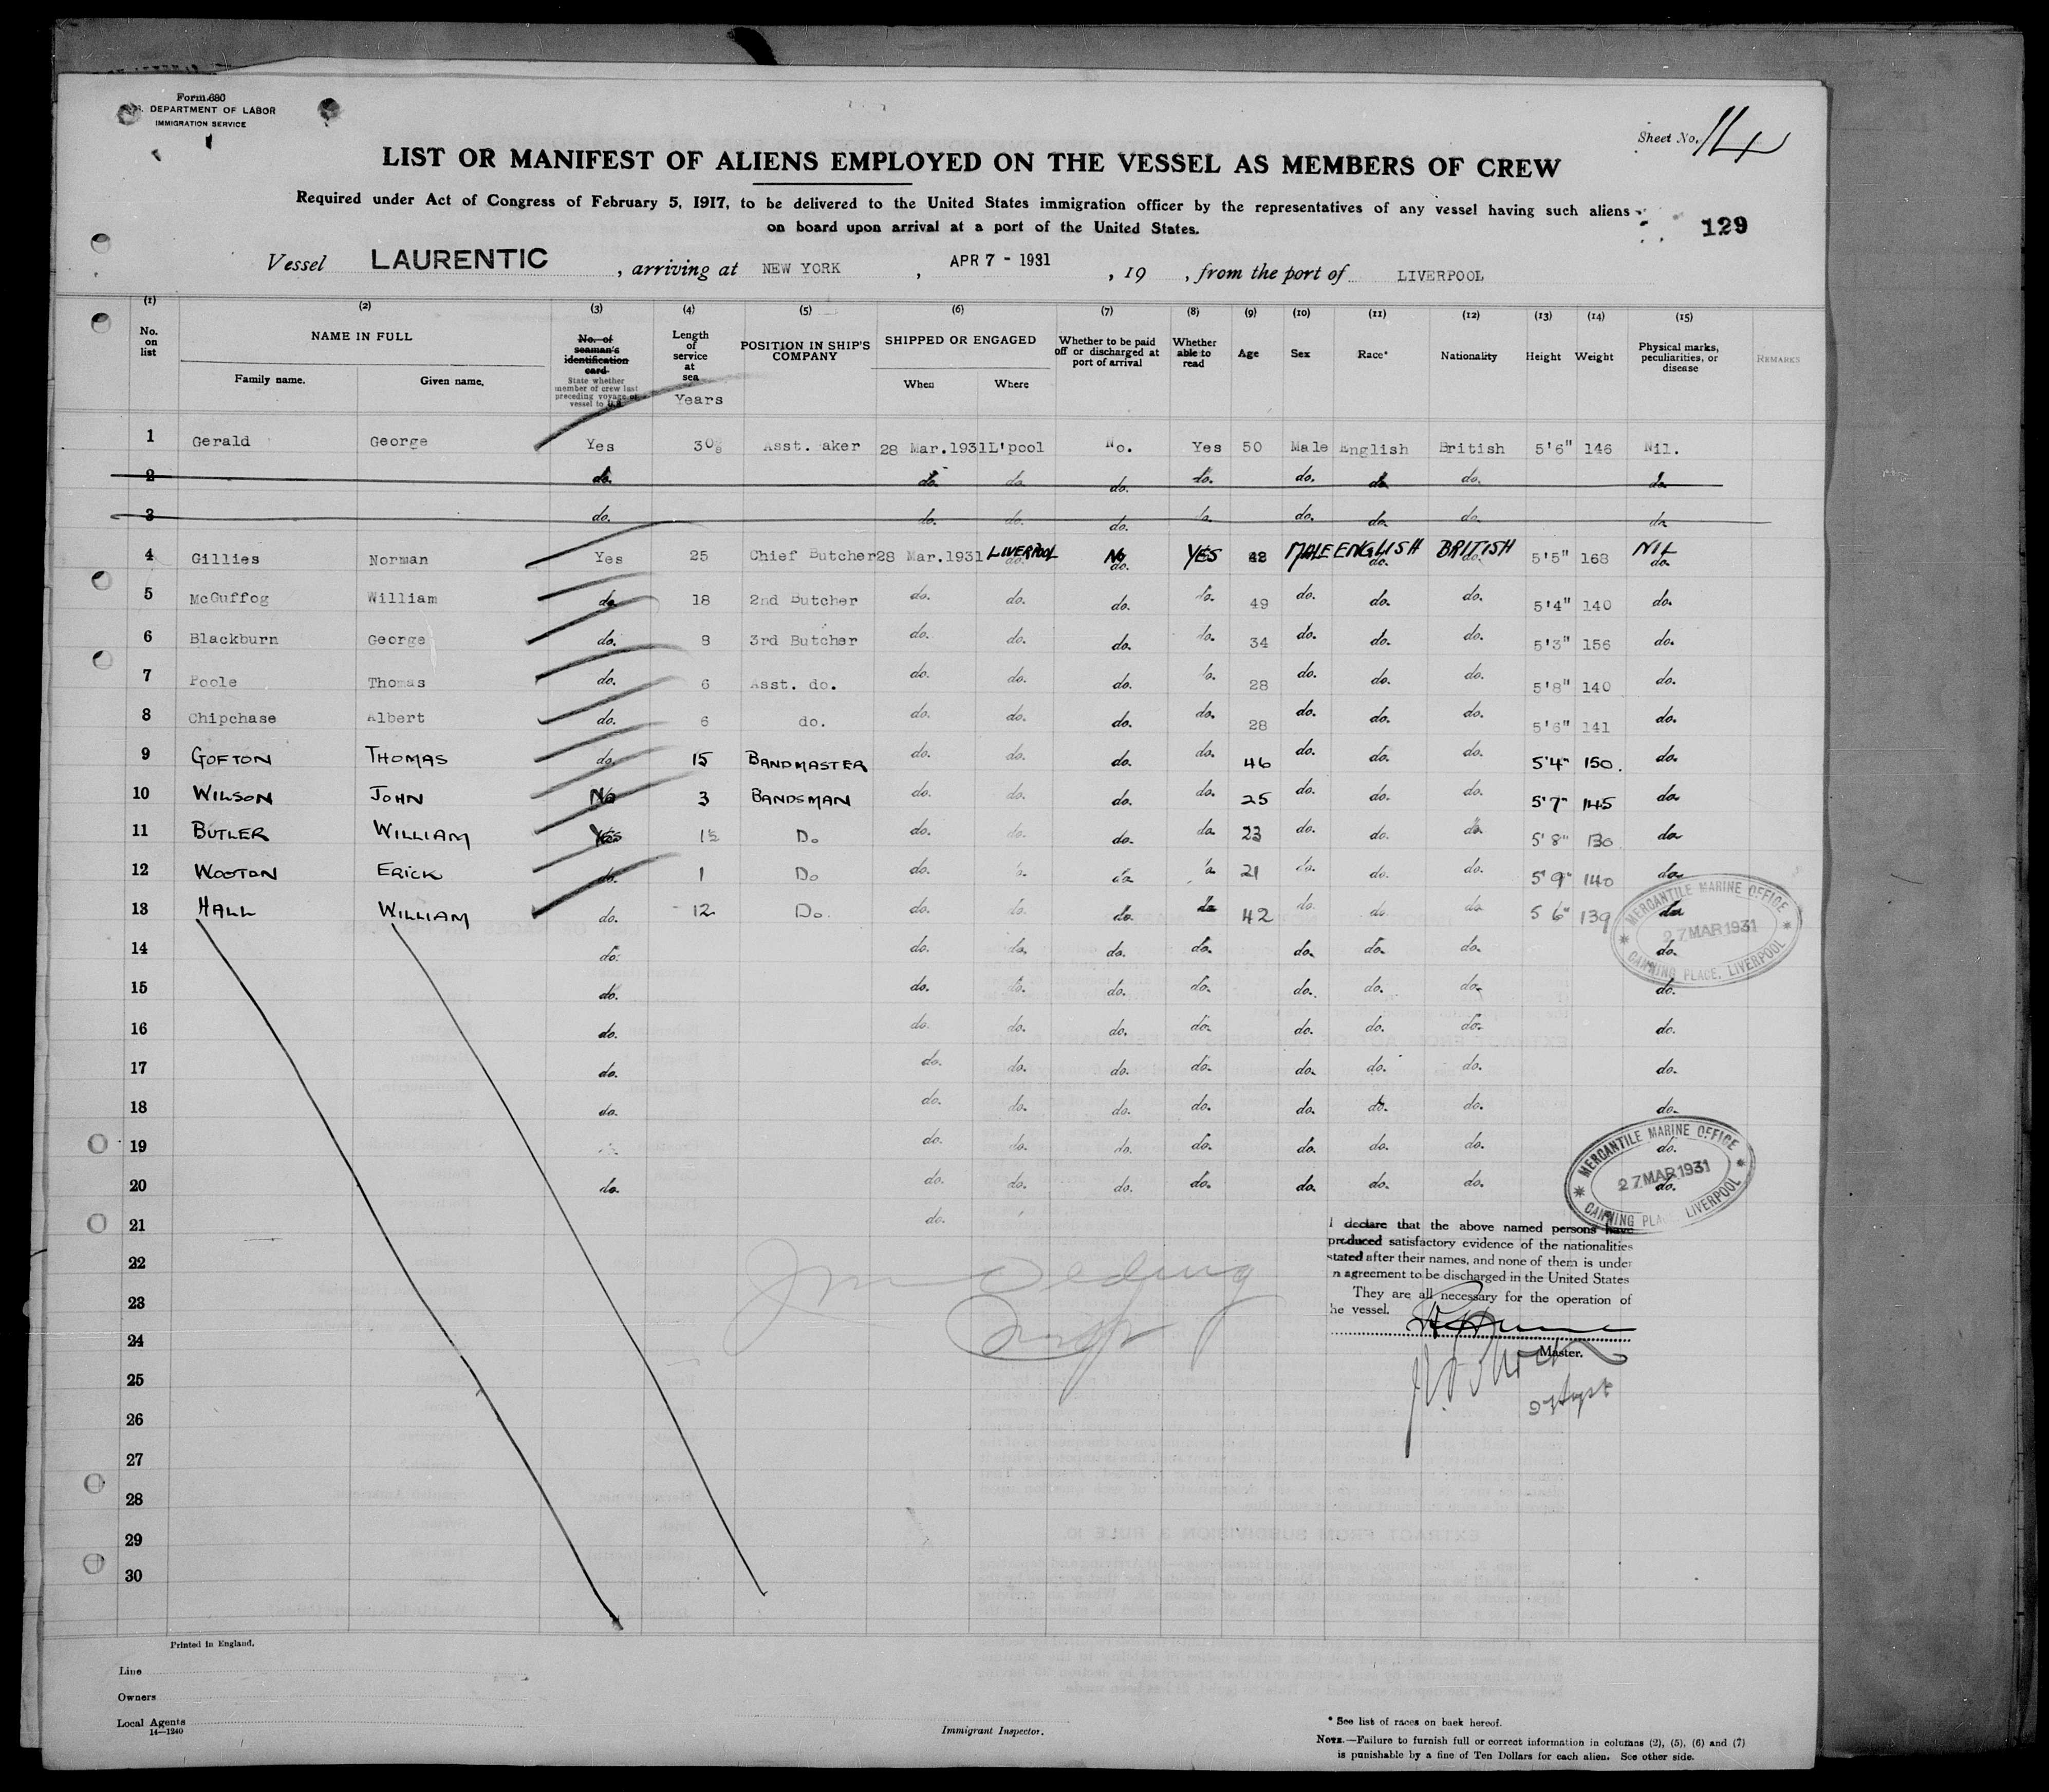 Form 680
DEPARTMENT OF LABOR
IMMIGRATION SERVICE
Sheet No. 14
LIST OR MANIFEST OF ALIENS EMPLOYED ON THE VESSEL AS MEMBERS OF CREW
Required under Act of Congress of February 5, 1917, to be delivered to the United States immigration officer by the representatives of any vessel having such aliens
on board upon arrival at a port of the United States.
129
Vessel LAURENTIC , arriving at NEW YORK , APR 7 - 1931 , 19 , from the port of LIVERPOOL
(1) (2) (3) (4) (5) (6) (7) (8) (9) (10) (11) (12) (13) (14) (15)
No. on list NAME IN FULL Family name. Given name. No. of seaman's identification card State whether member of crew last preceding voyage of vessel to U.S. Length of service at sea Years POSITION IN SHIP'S COMPANY SHIPPED OR ENGAGED When Where Whether to be paid off or discharged at port of arrival Whether able to read Age Sex Race* Nationality Height Weight Physical marks, peculiarities, or disease REMARKS
1 Gerald George Yes 30 Asst. aker 28 Mar.1931 L'pool No. Yes 50 Male English British 5'6" 146 Nil.
2 do. do. do. do. do. do. do. do. do.
3 do. do. do. do. do. do. do. do. do.
4 Gillies Norman Yes 25 Chief Butcher 28 Mar.1931 LIVERPOOL do. No do. YES MALE ENGLISH do. BRITISH do. 5'5" 168 NIL do.
5 McGuffog William do. 18 2nd Butcher do. do. do. do. 49 do. do. do. 5'4" 140 do.
6 Blackburn George do. 8 3rd Butcher do. do. do. do. 34 do. do. do. 5'3" 156 do.
7 Poole Thomas do. 6 Asst. do. do. do. do. do. 28 do. do. do. 5'8" 140 do.
8 Chipchase Albert do. 6 do. do. do. do. do. 28 do. do. do. 5'6" 141 do.
9 GOFTON THOMAS do. 15 BANDMASTER do. do. do. do. 46 do. do. do. 5'4" 150. do.
10 WILSON JOHN No 3 BANDSMAN do. do. do. do. 25 do. do. do. 5'7" 145 do.
11 BUTLER WILLIAM Yes Do do. do. do. do. 23 do. do. do. 5'8" 130 do.
12 WOOTON ERICK do. 1 Do do. do. do. 21 do. do. do. 5'9" 140 do.
13 HALL WILLIAM do. 12 Do. do. do. do. do. 42 do. do. do. 5 6" 139 do.
14 do. do. do. do. do. do. do. do. do.
15 do. do. do. do. do. do. do. do. do.
16 do. do. do. do. do. do. do. do. do.
17 do. do. do. do. do. do. do. do. do.
18 do. do. do. do. do. do. do. do. do.
19 do. do. do. do. do. do. do. do.
20 do. do. do. do. do. do. do. do. do.
21 do.
22
23
24
25
26
27
28
29
30
MERCANTILE MARINE OFFICE
27 MAR 1931
CANNING PLACE, LIVERPOOL
MERCANTILE MARINE OFFICE
27 MAR 1931
CANNING PLACE, LIVERPOOL
I declare that the above named persons have
produced satisfactory evidence of the nationalities
stated after their names, and none of them is under
n agreement to be discharged in the United States
They are all necessary for the operation of
he vessel.
Master.
Printed in England.
Line
Owners
Local Agents
14—1240
Immigrant Inspector.
* See list of races on back hereof.
NOTE.—Failure to furnish full or correct information in columns (2), (5), (6) and (7)
is punishable by a fine of Ten Dollars for each alien. See other side.